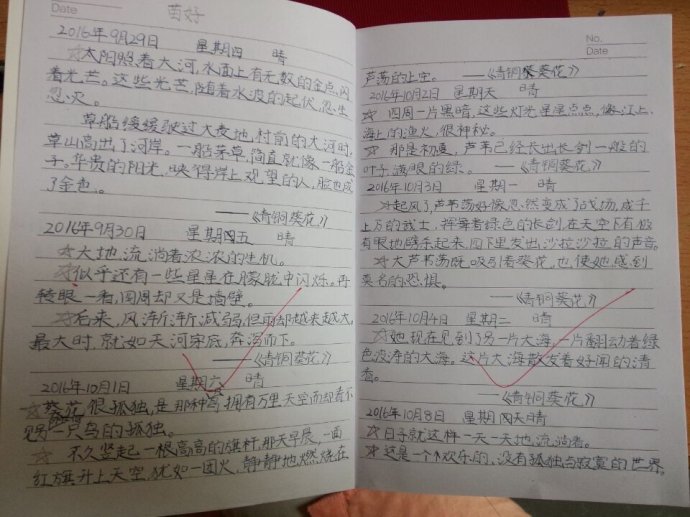 Date
苗好
2016年9月29日 星期四 晴
☆太阳照着大河,水面上有无数的金点,闪
着光芒。这些光芒,随着水波的起伏,忽生
忽灭。
草船缓缓驶过大麦地,村前的大河时,
草山高出了河岸。一船茅草,简直就像一船金
子。华贵的阳光,映得岸上观望的人,脸也成
了金色。
——《青铜葵花》
2016年9月30日 星期五 晴
☆大地,流淌着浓浓的生机。
☆似乎还有一些星星在朦胧中闪烁。再
转眼一看,四周却又是墙壁。
☆后来,风渐渐减弱,但雨却越来越大,
最大时,就如天河穿底,奔泻而下。
——《青铜葵花》
2016年10月1日 星期六 晴
☆葵花很孤独,是那种拥有万里天空而却看不
见另一只鸟的孤独。
不久竖起一根高高的旗杆,那天早晨,一面
红旗升上天空,犹如一团火,静静地燃烧在
No.
Date
芦荡的上空。 ——《青铜葵花》
2016年10月2日 星期天 晴
☆四周一片黑暗,这些灯光星星点点,像江上、
海上的渔火,很神秘。
☆那是初夏,芦苇已经长出长剑一般的
叶子,满眼的绿。 ——《青铜葵花》
2016年10月3日 星期一 晴
☆起风了,芦苇荡好像忽然变成了战场,成千
上万的武士,挥舞着绿色的长剑,在天空下有板
有眼地劈杀起来,四下里发出沙拉沙拉的声音。
☆大芦苇荡既吸引着葵花,也使她感到
莫名的恐惧。
——《青铜葵花》
2016年10月4日 星期二 晴
☆她现在见到了另一片大海,一片翻动着绿
色波涛的大海。这片大海散发着好闻的清
香。
——《青铜葵花》
2016年10月8日 星期六 晴
☆日子就这样一天一天地流淌着。
☆这是一个欢乐的,没有孤独与寂寞的世界。